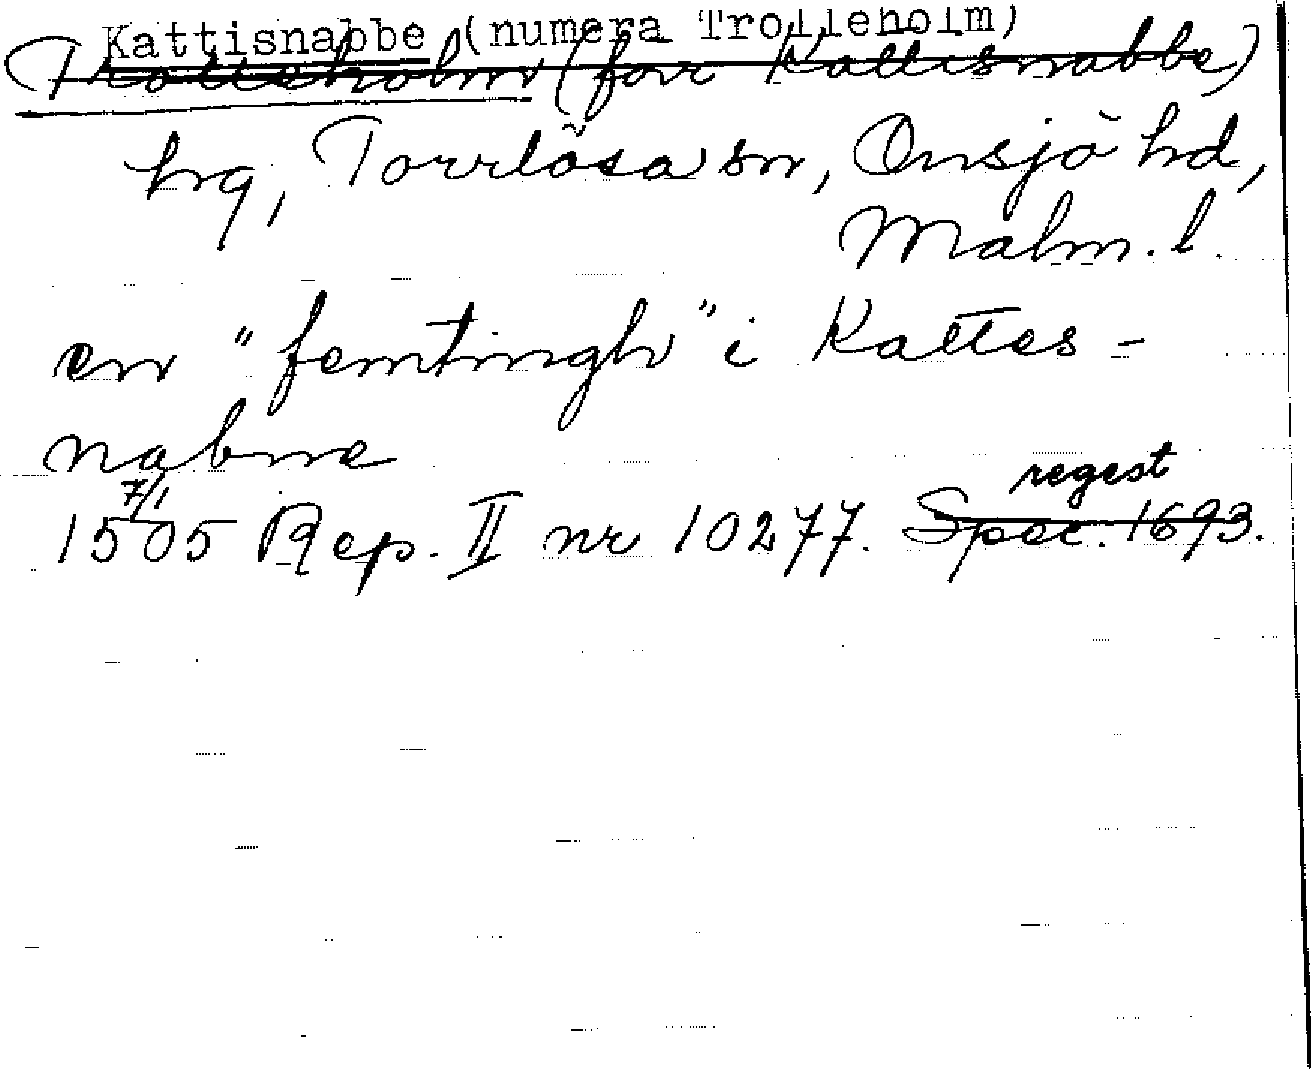 Kattisnabbe (numera Trolleholm)
Trolleholm (förr Kattisnabbe)
hg, Torrlösa sn, Onsjö hd,
Malm. l.
en "femtingh" i Kattes-
nabne
7/1 regest
1505 Rep. II nr 10277. Spec. 1693.